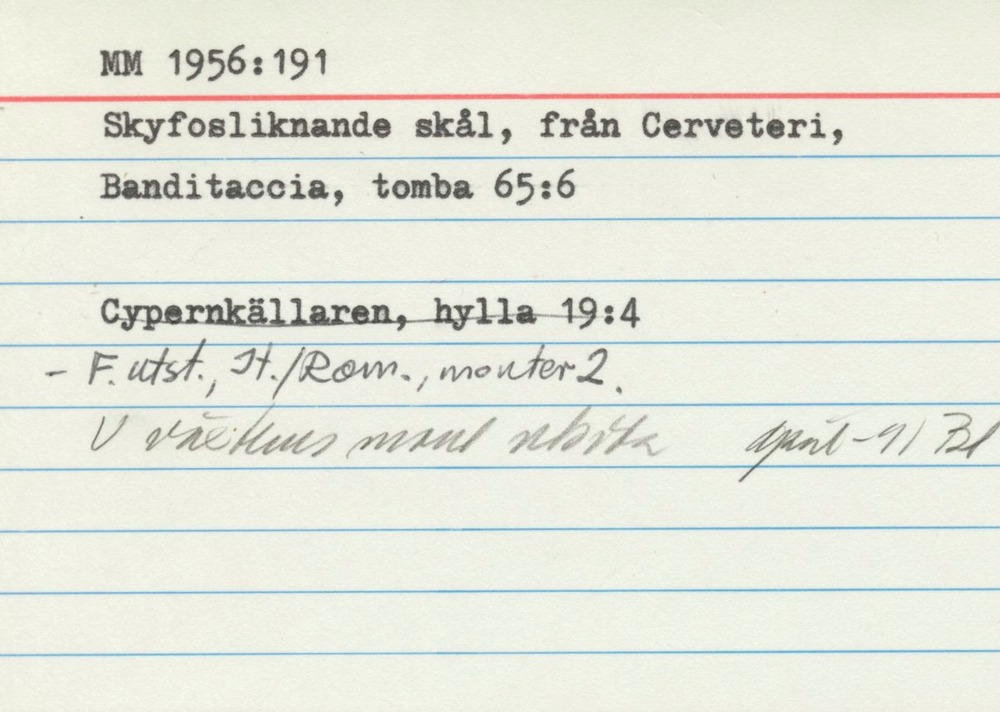 MM 1956:191
Skyfosliknande skål, från Cerveteri,
Banditaccia, tomba 65:6
Cypernkällaren, hylla 19:4
- F. utst., It./Rom., monter 2.
V april -91